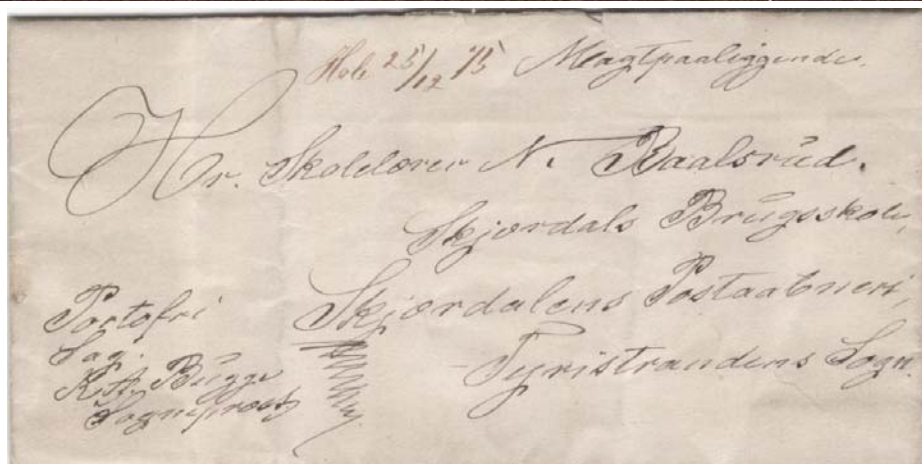 Hole 25/12 75 Magtpaaliggende.
Hr. Skolelærer N. Baalsrud.
Skjørdals Brugsskole,
Skjørdalens Postaabneri,
Tyristrandens Sogn.
Portofri
Sag.
K. A. Bugge
Sognepræst